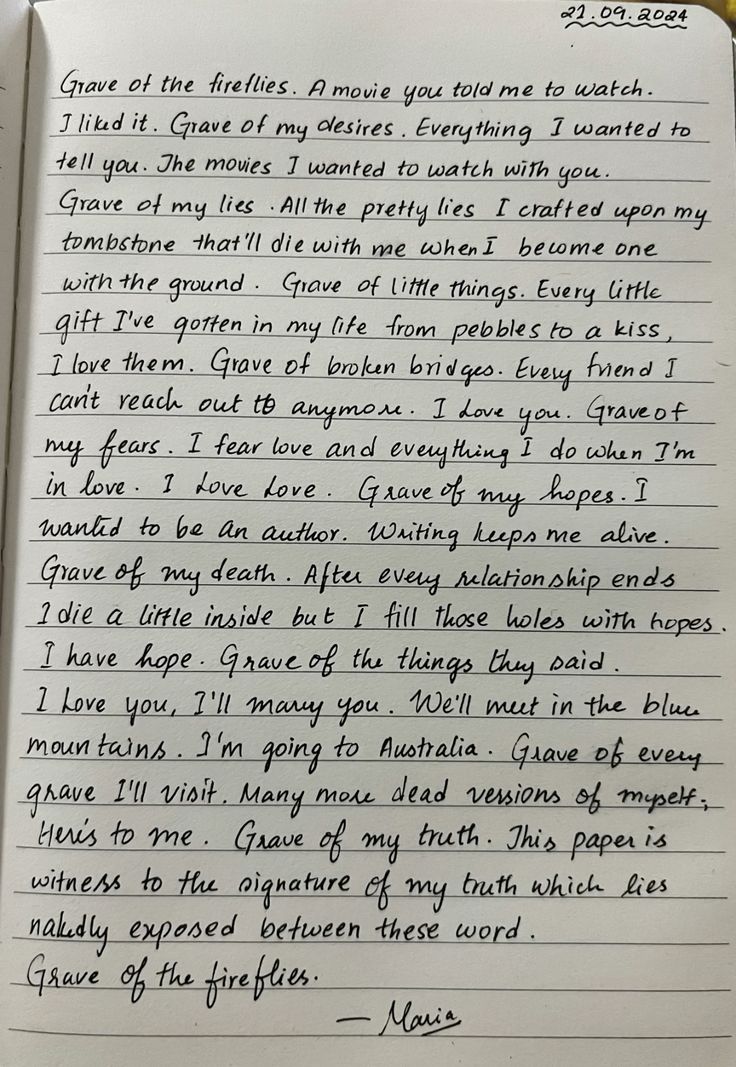 21.09.2024
Grave of the fireflies. A movie you told me to watch.
I liked it. Grave of my desires. Everything I wanted to
tell you. The movies I wanted to watch with you.
Grave of my lies. All the pretty lies I crafted upon my
tombstone that'll die with me when I become one
with the ground. Grave of little things. Every little
gift I've gotten in my life from pebbles to a kiss,
I love them. Grave of broken bridges. Every friend I
can't reach out to anymore. I Love you. Grave of
my fears. I fear love and everything I do when I'm
in love. I Love Love. Grave of my hopes. I
wanted to be an author. Writing keeps me alive.
Grave of my death. After every relationship ends
I die a little inside but I fill those holes with hopes.
I have hope. Grave of the things they said.
I Love you, I'll marry you. We'll meet in the blue
mountains. I'm going to Australia. Grave of every
grave I'll visit. Many more dead versions of myself;
Here's to me. Grave of my truth. This paper is
witness to the signature of my truth which lies
nakedly exposed between these word.
Grave of the fireflies.
— Maria